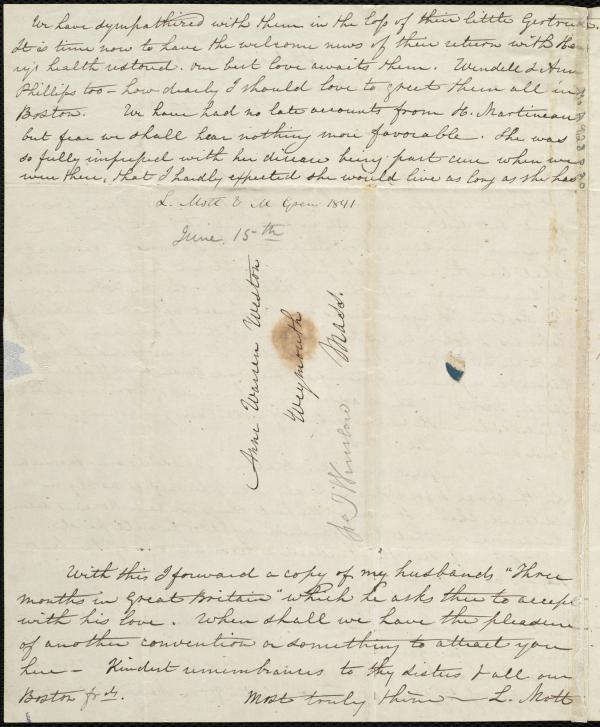 We have sympathized with them in the loss of their little Gertrude.
It is time now to have the welcome news of their return with Hen-
ry's health restored. our best love awaits them. Wendell & Ann
Phillips too - how dearly I should love to greet them all in
Boston. We have had no late accounts from H. Martineau
but fear we shall hear nothing more favorable. She was
so fully impressed with her disease being past cure when we
were there, that I hardly expected she would live as long as she has
L. Mott & M Grew 1841
June, 15th
Anne Warren Weston
Weymouth
Mass.
Winslow
With this I forward a copy of my husbands "Three
months in Great Britain" which he asks thee to accept
with his love. When shall we have the pleasure
of another convention or something to attract you
here - Kindest remembrances to thy sisters & all our
Boston frds. Most truly thine - L. Mott